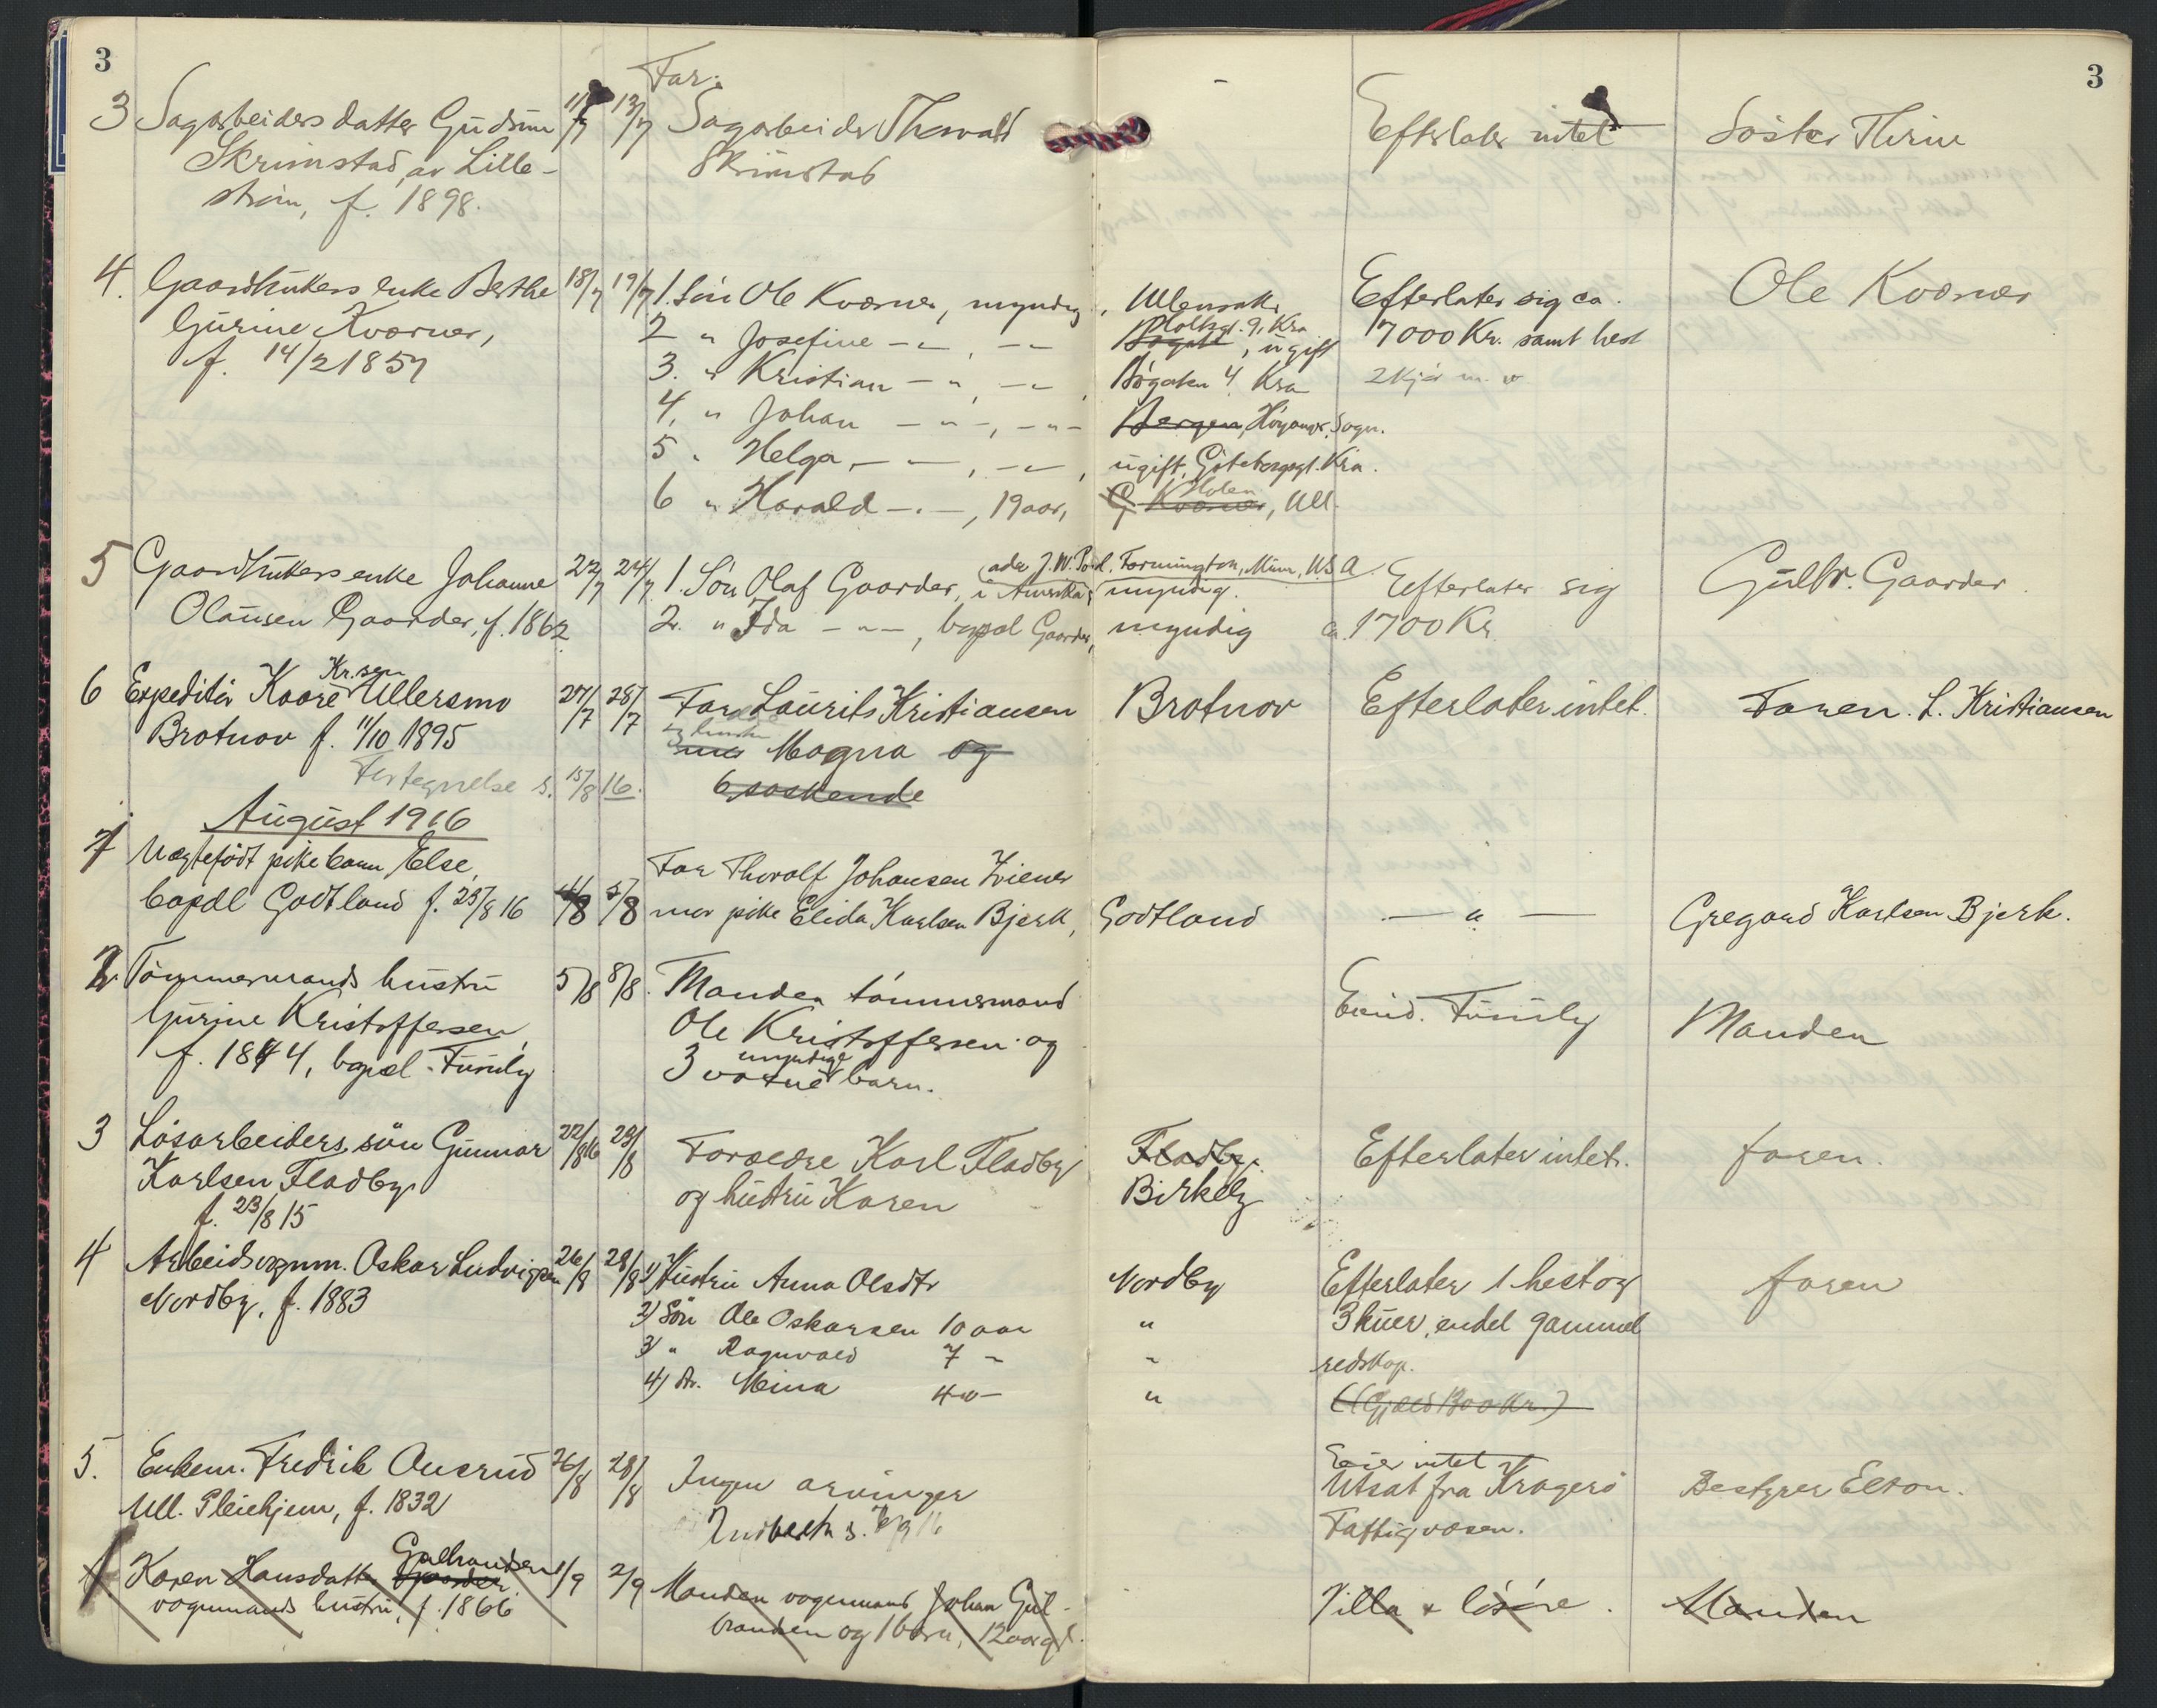 3
3
Far:
3 Sagarbeiders datter Gudrun 11/7 13/7 Sagarbeider Thorvald Efterlater intet Søster Thrine
Skrimstad, av Lille-
Skrimstad
strøm, f. 1898.
4. Gaardbrukers enke Berthe 18/7 19/7 1. Søn Ole Kværner, myndig, Ullensaker Efterlater sig ca. Ole Kværner
Gurine Kværner, 2 " Josefine - " - , - " - Toftesgt. 9, Kra , ugift 7000 Kr. samt hest
f. 14/2 1857 3. " Kristian - " - , - " - , Bøgaten 4 Kra 2 kjør m. v
4, " Johan - " - , - " - Bergen, Høyanger, Sogn.
5 " Helga, - " - , - " - , ugift, Gøteborggt. Kra.
6 " Harald - " - , 19 aar, Holen
G. Kværner, Ull.
adr J. W. Farmington, Minn, U.S.A
5 Gaardbrukers enke Johanne 22/7 24/7 1. Søn Olaf Gaarder, i Amerika, myndig. Efterlater sig Gulbr. Gaarder.
Olausen Gaarder, f. 1862. 2. " Ida - " - , bopæl Gaarder, myndig ca. 1700 Kr.
Kr.sen
6 Expeditør Kaare Ullersmo 27/7 28/7 Far Laurits Kristiansen Brotnov Efterlater intet. Faren. L. Kristiansen
Brotnov f. 11/10 1895 og hustru
mor Magna og
Fortegnelse s. 15/8 16. 6 søskende
August 1916
1 Uegtefødt pikebarn Else, Far Thoralf Johansen Zviener
bopæl Godtland f. 23/8 16 4/8 5/8 mor pike Elida Karlsen Bjerk, Godtland - " - Gregard Karlsen Bjerk.
2. Tømmermands hustru 5/8 8/8. Manden tømmermand Eiend. Furuly Manden
Gurine Kristoffersen Ole Kristoffersen og
f. 1844, bopæl Furuly myndige
3 voxne barn.
3 Løsarbeiders søn Gunnar 22/8 16 23/8 Foræeldre Karl Fladby Fladby. Efterlater intet. faren.
Karlsen Fladby og hustru Karen Birkely
f. 23/8 15
4 Arbeidsvognm. Oskar Ludvigsen 26/8 28/8 1) Hustru Anna Olsdtr Nordby Efterlater 1 hest og faren
Nordby, f. 1883 2) Søn Ole Oskarsen 10 aar " 3 kuer, endel gammel
3) " Ragnvald 7 - " redskap.
4) Dr. Meina 4 " - " (Gjæld 1300 Kr.)
5. Enkem. Fredrik Ousrud 26/8 28/8 Ingen arvinger Eier intet
Utsat fra Kragerø Bestyrer Elton.
Ull. Pleiehjem, f. 1832 Indberetn s. 9 16 Fattigvæsen.
Gulbrandsen
1. Karen Hansdatter Gaarder 1/9 2/9 Manden vognmand Johan Gul- Villa & løsøre. Manden
vognmands hustru, f. 1866 brandsen og 1 barn, 12 aar gl.